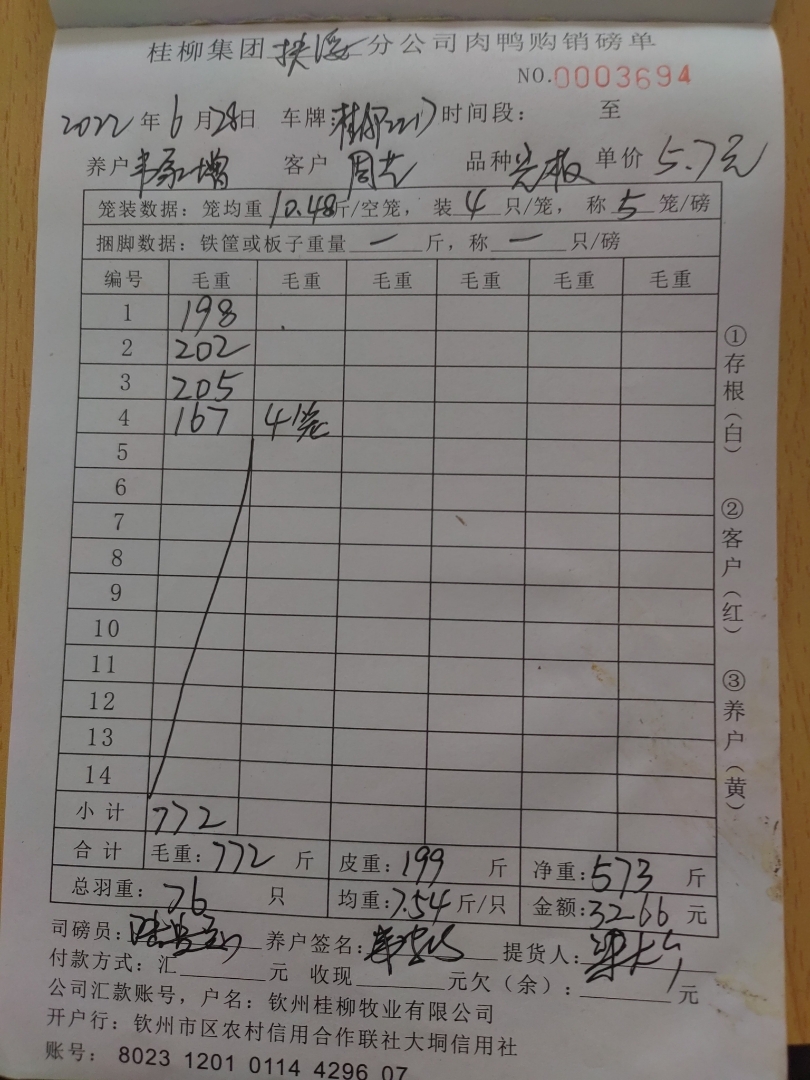 桂柳集团扶绥分公司肉鸭购销磅单
NO.0003694
2022年6月28日 车牌: 时间段: 至
养户 客户 周 品种 光板 单价 5.7元
笼装数据:笼均重10.48斤/空笼,装4只/笼,称5笼/磅
捆脚数据:铁筐或板子重量一斤,称一只/磅
编号 毛重 毛重 毛重 毛重 毛重 毛重
1 198
2 202
3 205
4 167 4笼
5
6
7
8
9
10
11
12
13
14
小计 772
合计 毛重:772斤 皮重:199斤 净重:573斤
总羽重:76只 均重:7.54斤/只 金额:3266元
司磅员: 养户签名: 提货人:
付款方式:汇 元 收现 元欠(余): 元
公司汇款账号,户名:钦州桂柳牧业有限公司
开户行:钦州市区农村信用合作联社大垌信用社
账号: 8023 1201 0114 4296 07
①存根(白)
②客户(红)
③养户(黄)